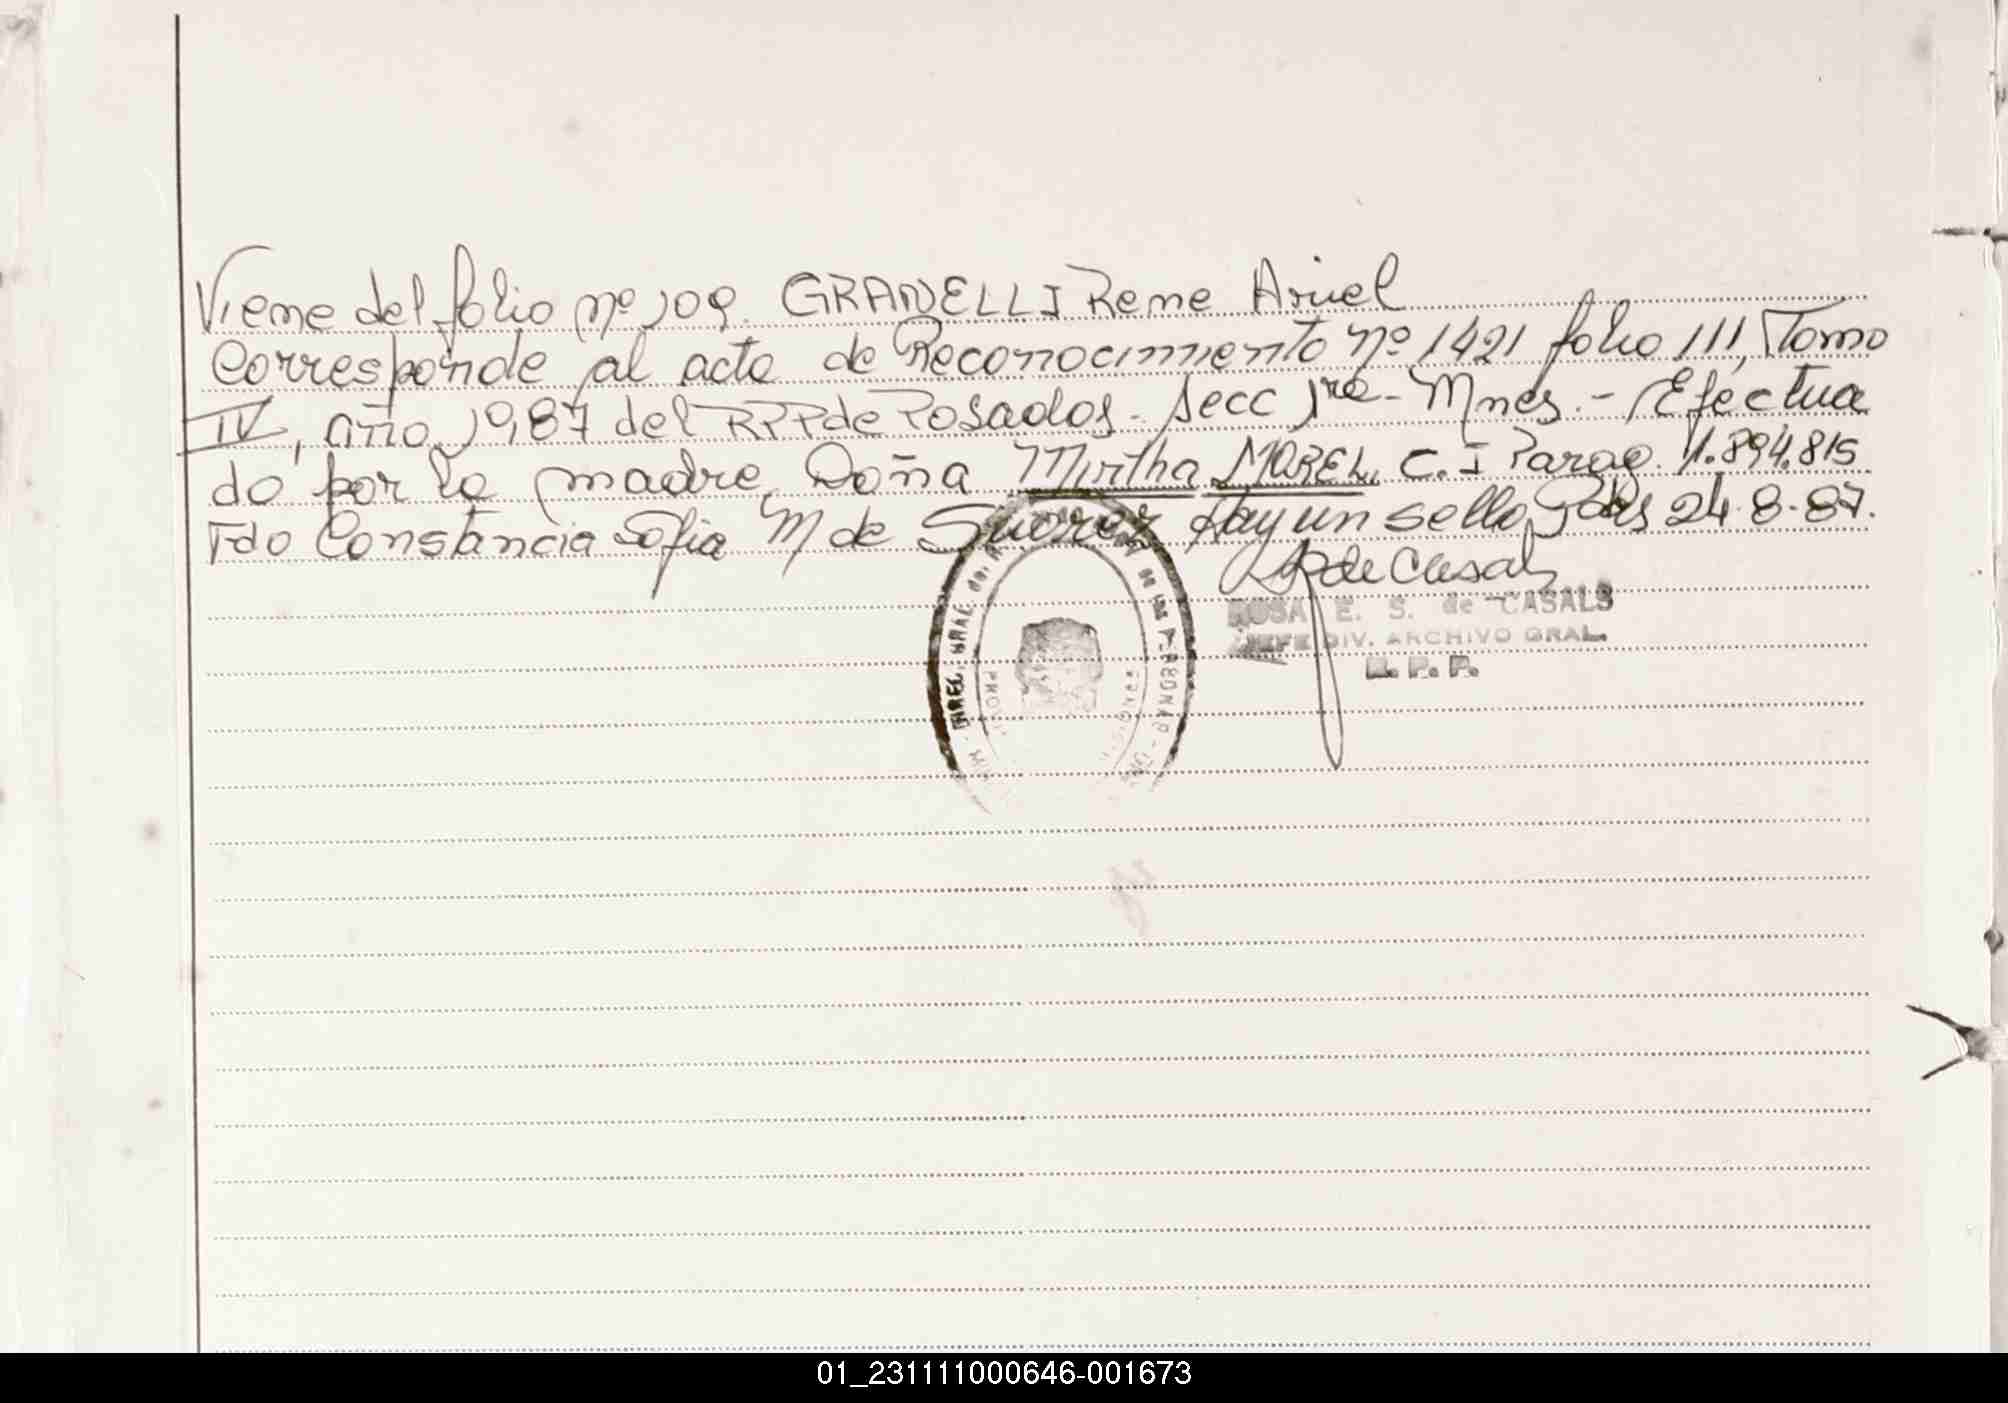 Viene del folio nº 109. GRANELLI Rene Ariel
Corresponde al acta de Reconocimiento nº 1421 folio 111, Tomo
IV, año 1987 del RPP de Posadas. Secc 1ra - Mnes. - Efectua
do por la madre, Doña Mirtha MOREL, C. I Parag. 1.894.815
Fdo Constancia Sofia M de Suarez Hay un sello, Pdas 24-8-87.
de Casals
ROSA E. S. de CASALS
JEFE DIV. ARCHIVO GRAL.
R. P. P.
DIREC. GRAL. del
DE LAS PERSONAS
PROV.
MISIONES
01_231111000646-001673